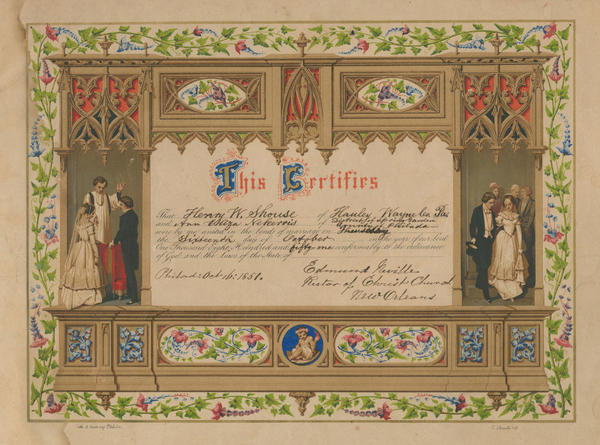 This Certifies
That Henry W. Shouse of Hanley Wayne Co. Pa.
and Ann Eliza Nekervis of District of Spring Garden
County Philada
were by me united in the bonds of marriage in Thursday
the Sixteenth day of October in the year of our Lord
One Thousand Eight Hundred and fifty one conformably to the ordinance
of God and the Laws of the State of
Philad: Oct 16: 1851.
Edmund Neville
Rector of Christ Church
New Orleans